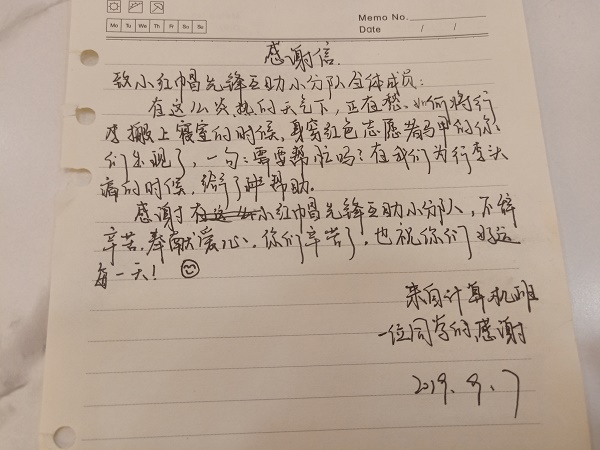 Memo No.
Mo Tu We Th Fr Sa Su
Date / /
感谢信.
致小红帽先锋互助小分队全体成员:
在这么炎热的天气下,正在愁如何将行
李搬上寝室的时候,身穿红色志愿者马甲的你
们出现了,一句:需要帮忙吗?在我们为行李头
痛的时候,给予了帮助。
感谢小红帽先锋互助小分队,不辞
辛苦,奉献爱心,你们辛苦了,也祝你们好运
每一天!
来自计算机班
一位同学的感谢
2019.9.7